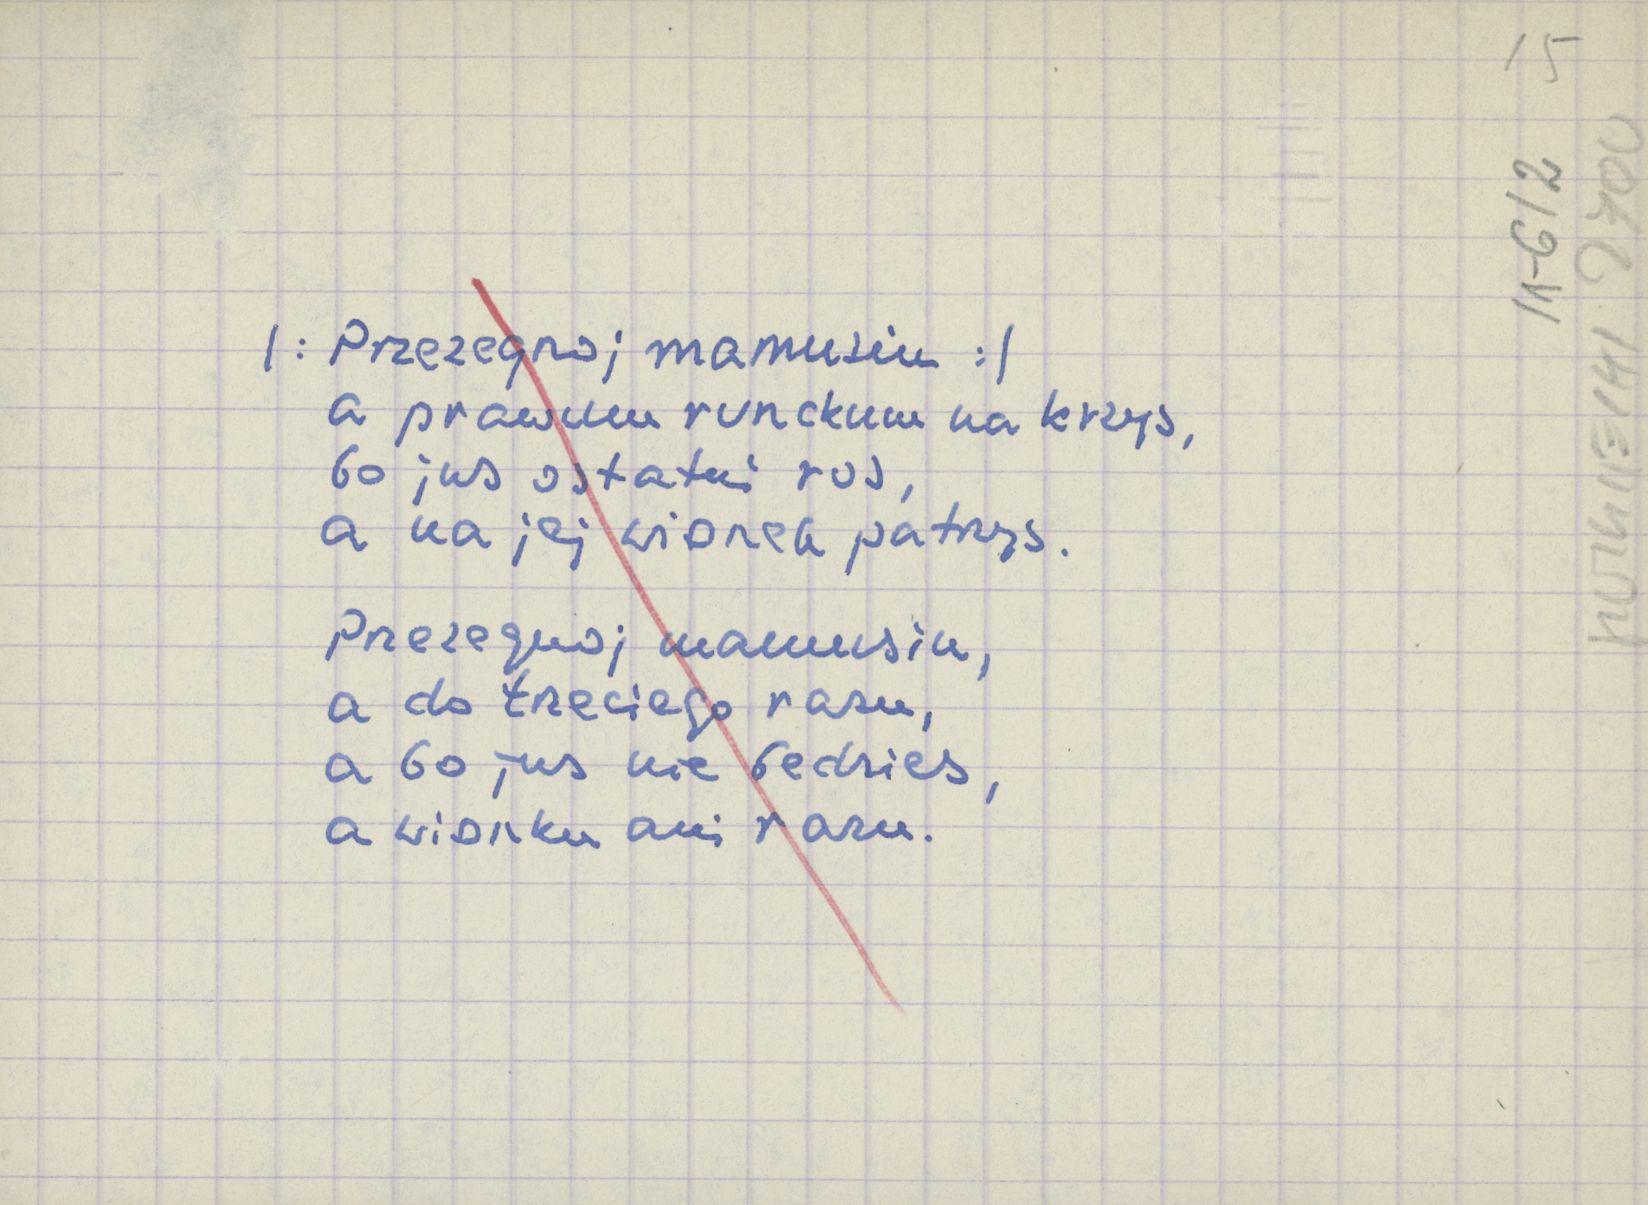 |: Przezegnoj mamusiu :|
a prawum runckum na krzys,
bo jus ostatni ros,
a na jej wionek patrzys.
Przezegnoj mamusiu,
a do trzeciego razu,
a bo jus nie bedzies,
a wionku ani razu.
15
2700